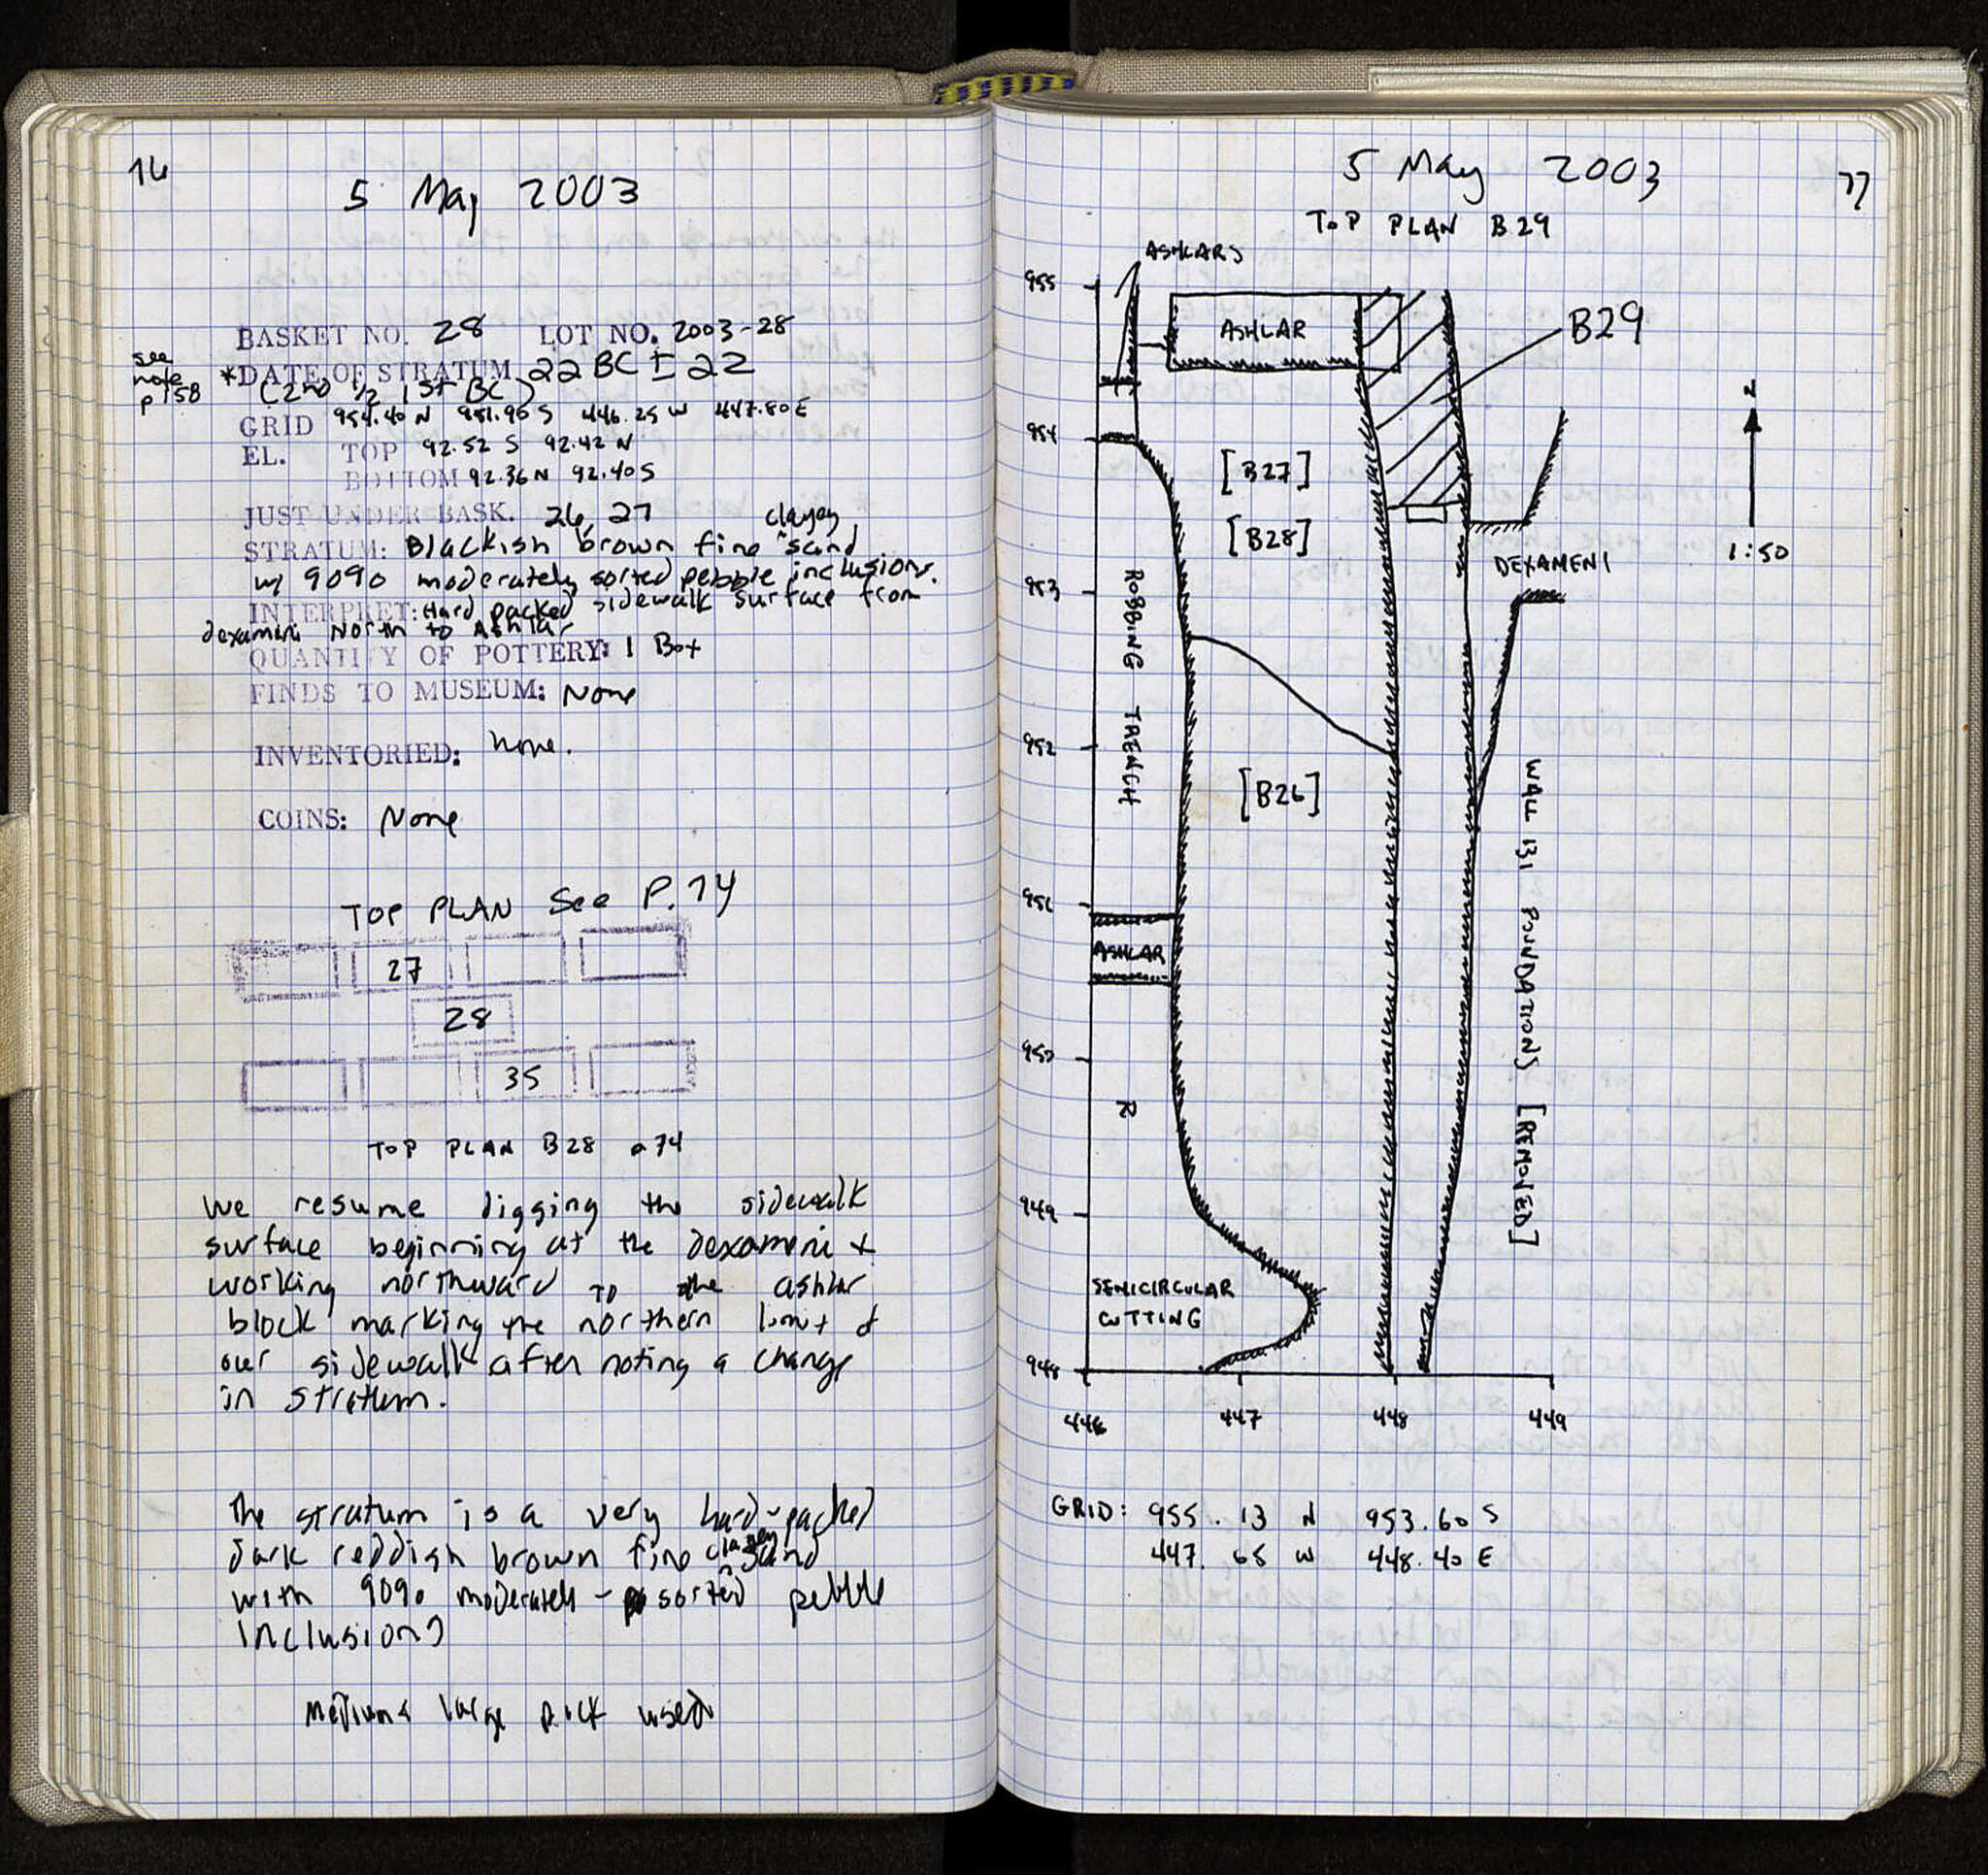 76
5 May 2003
BASKET NO. 28 LOT NO. 2003-28
see
note
p 158
*DATE OF STRATUM 22 BC ± 22
(2nd 1/2 1st BC)
GRID 954.40 N 951.90 S 446.25 W 447.80 E
EL. TOP 92.52 S 92.42 N
BOTTOM 92.36 N 92.40 S
JUST UNDER BASK. 26, 27
clayey
STRATUM: Blackish brown fine ^sand
w/ 90% moderately sorted pebble inclusions.
INTERPRET: Hard packed sidewalk surface from
dexameni North to Ashlar
QUANTITY OF POTTERY: 1 Box
FINDS TO MUSEUM: None
INVENTORIED: None.
COINS: None
TOP PLAN See P. 74
27
28
35
TOP PLAN B28 p74
We resume digging the sidewalk
surface beginning at the dexameni +
working northward to the ashlar
block marking the northern limit of
our sidewalk after noting a change
in stratum.
The stratum is a very hard-packed
dark reddish brown fine clayey sand
with 90% moderately-sorted pebble
inclusions
medium & large pick used
77
5 May 2003
TOP PLAN B29
ASHLARS
955
ASHLAR
B29
N
954
[B27]
[B28]
1:50
DEXAMENI
953
ROBBING TRENCH
952
[B26]
WALL 131 FOUNDATIONS [REMOVED]
951
ASHLAR
950
R
949
SEMICIRCULAR
CUTTING
948
446 447 448 449
GRID: 955.13 N 953.60 S
447.65 W 448.40 E